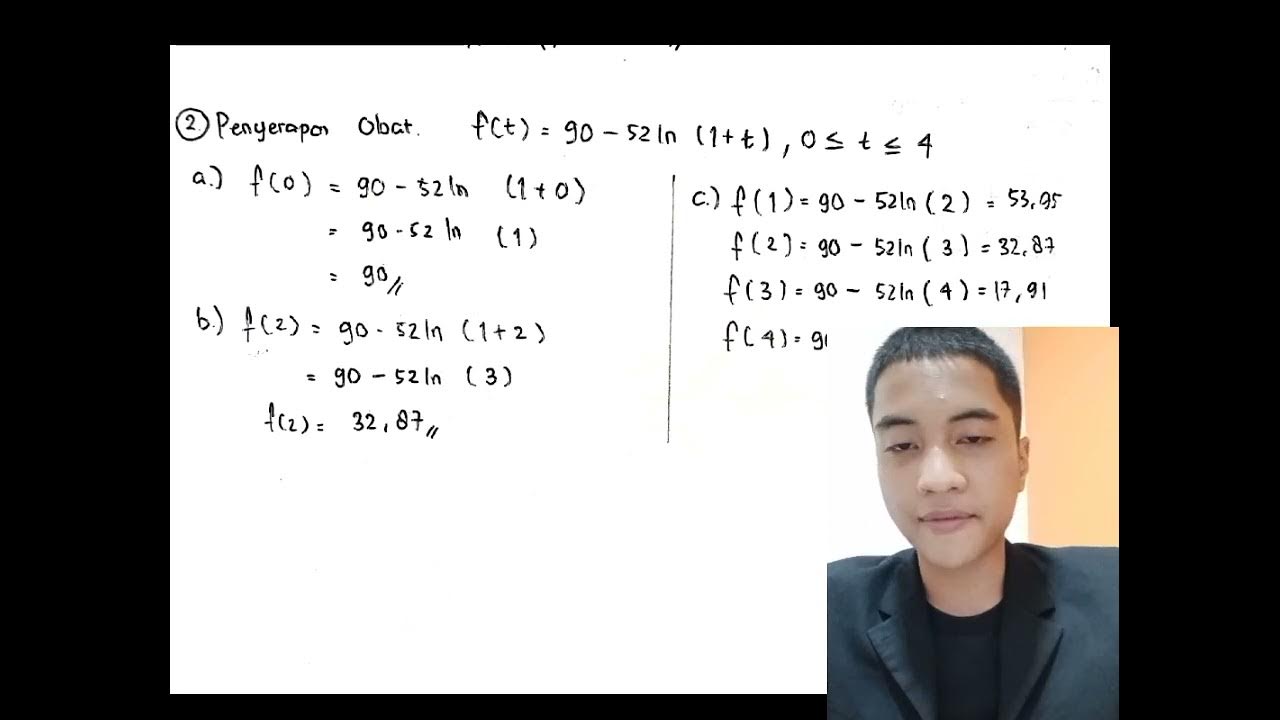 2 Penyerapan Obat. f(t) = 90 - 52 ln (1+t), 0 ≤ t ≤ 4
a.) f(0) = 90 - 52 ln (1+0)
= 90 - 52 ln (1)
= 90 //
b.) f(2) = 90 - 52 ln (1+2)
= 90 - 52 ln (3)
f(2) = 32,87 //
c.) f(1) = 90 - 52 ln (2) = 53,95
f(2) = 90 - 52 ln (3) = 32,87
f(3) = 90 - 52 ln (4) = 17,91
f(4) = 9